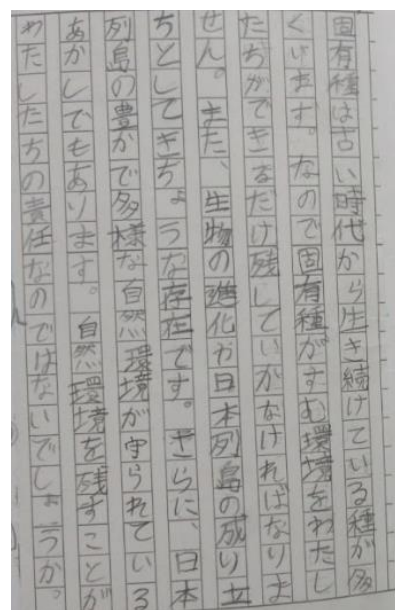 固有種は古い時代から生き続けている種が多
くいます。なので固有種がすむ環境をわたし
たちができるだけ残していかなければなりま
せん。また、生物の進化や日本列島の成り立
ちとしてきちょうな存在です。さらに、日本
列島の豊かで多様な自然環境が守られている
あかしでもあります。自然環境を残すことが
わたしたちの責任なのではないでしょうか。